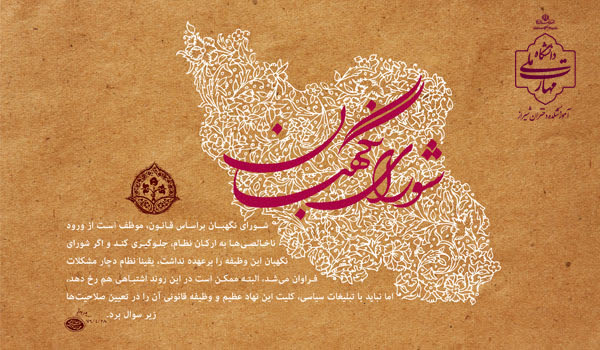 دانشگاه
ملی
مهارت
آموزشکده دختران شیراز
شورای نگهبان
شورای نگهبان براساس قانون، موظف است از ورود
ناخالصی‌ها به ارکان نظام، جلوگیری کند و اگر شورای
نگهبان این وظیفه را برعهده نداشت، یقینا نظام دچار مشکلات
فراوان می‌شد. البته ممکن است در این روند اشتباهی هم رخ دهد،
اما نباید با تبلیغات سیاسی، کلیت این نهاد عظیم و وظیفه قانونی آن را در تعیین صلاحیت‌ها
زیر سوال برد.